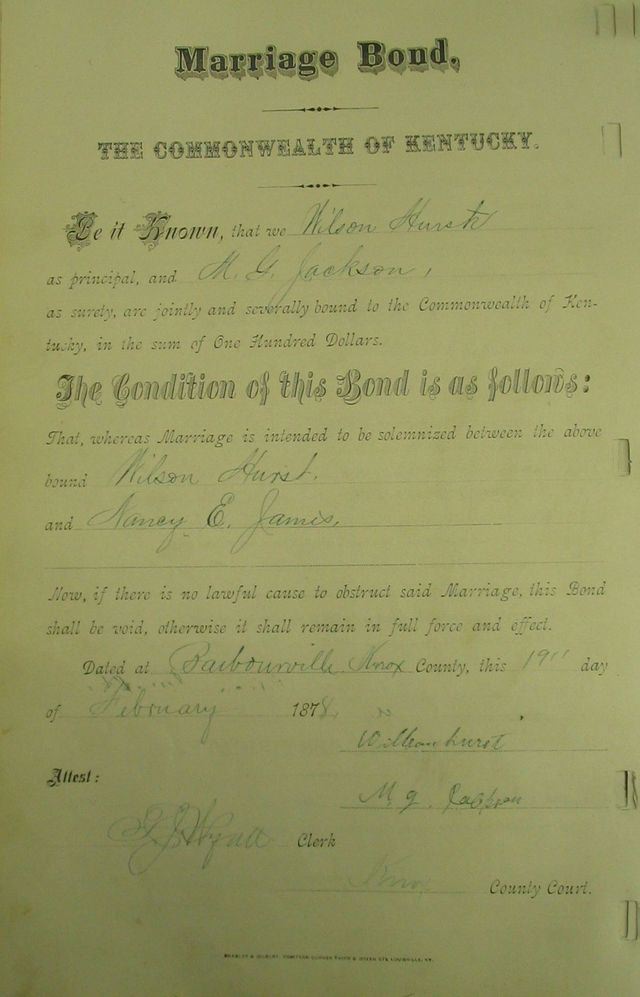 Marriage Bond,
THE COMMONWEALTH OF KENTUCKY.
Be it Known, that we Wilson Hurst
as principal, and M. G. Jackson,
as surety, are jointly and severally bound to the Commonwealth of Ken-
tucky, in the sum of One Hundred Dollars.
The Condition of this Bond is as follows:
That, whereas Marriage is intended to be solemnized between the above
bound Wilson Hurst.
and Nancy E. James,
Now, if there is no lawful cause to obstruct said Marriage, this Bond
shall be void, otherwise it shall remain in full force and effect.
Dated at Barbourville Knox County, this 19" day
of February 1878
hurst
Attest:
M g
Clerk
Knox County Court.